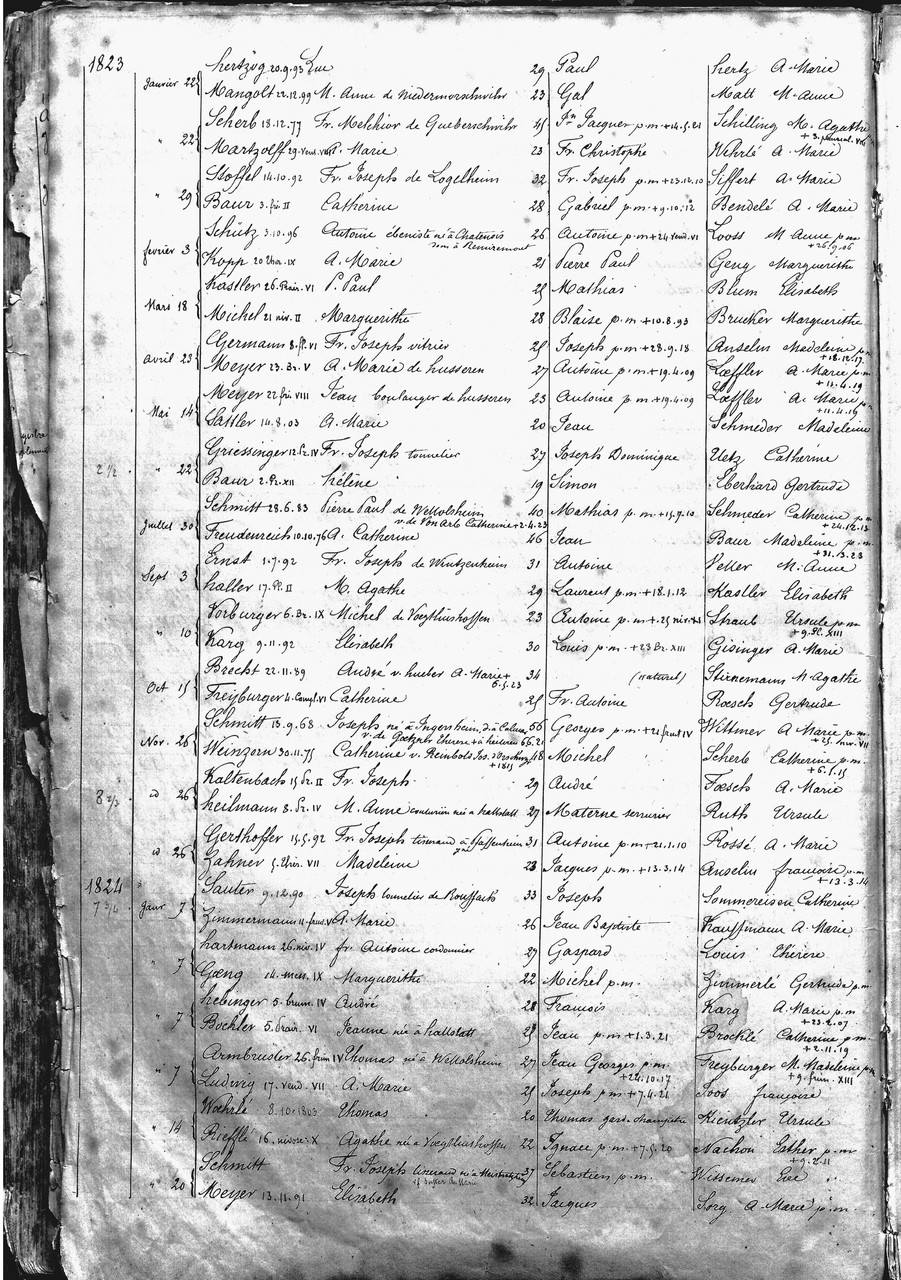 1823 hertzog 20.9.93 Luc 29 Paul hertz A. Marie
Janvier 22 Mangolt 22.12.99 M. Anne de Niedermorschwihr 23 Gal Matt M. Anne
Scherb 18.12.77 Fr. Melchior de Gueberschwihr 45 Jn Jacques p.m. +14.5.21 Schilling M. Agathe
" 22 Martzolff 29. Vend. A. Marie 23 Fr. Christophe Wehrlé A. Marie
Stoffel 14.10.92 Fr. Joseph de Logelheim 32 Fr. Joseph p.m +23.12.10 Siffert A. Marie
" 29 Baur 3. fri. II Catherine 28 Gabriel p.m +9.10.12 Bendelé A. Marie
Schütz 3.10.96 Antoine ébeniste né à Chatenois 26 Antoine p.m +24 Vend. VI Looss M Anne p.m
dem à Remiremont +26.9.06
fevrier 3 Kopp 20 Ther. IX A. Marie 21 Pierre Paul Geng Marguerithe
Kastler 26. VI P. Paul 25 Mathias Blum Elisabeth
Mars 18 Michel 21 niv. II Marguerithe 28 Blaise p.m +10.8.93 Brucker Marguerithe
Germann 8. fl. VI Fr. Joseph vitrier 25 Joseph p.m +28.9.18 Anselm Madeleine p.m
+18.12.17
avril 23 Meyer 23. Br. V A. Marie de husseren 27 Antoine p.m +19.4.09 Lœffler A. Marie p.m
+11.4.19
Meyer 22 fri. VIII Jean boulanger de husseren 23 Antoine p.m +19.4.09 Lœffler A. Marie
+11.4.19
Mai 14 Sattler 14.8.03 A. Marie 20 Jean Schmeder Madeleine
Griessinger Fr. Joseph tonnelier 27 Joseph Dominique Uetz Catherine
2 1/2 " 22 Baur 2. XII hélène 19 Simon Eberhard Gertrude
Schmitt 28.6.83 Pierre Paul de Wettolsheim 40 Mathias p.m +15.9.10 Schmeder Catherine p.m
v. de Von Arb Catherine +2.4.23 +24.12.13
Juillet 30 Freudenreich 10.10.76 A. Catherine 46 Jean Baur Madeleine p.m.
+31.3.23
Ernst 1.7.92 Fr. Joseph de Wintzenheim 31 Antoine Vetter M. Anne
Sept 3 haller 17. Pl. II M. Agathe 29 Laurent p.m +18.1.12 Kastler Elisabeth
Vorburger 6. Br. IX Michel de Voegtlinshoffen 23 Antoine p.m +25 niv. Straub Ursule p.m
+9. Pl. XIII
" 10 Karg 9.11.92 Elisabeth 30 Louis p.m +28 Br. XIII Gisinger A. Marie
Brecht 22.11.89 André v. hueber A. Marie + 34 (naturel) Stirnemann M Agathe
6.5.23
Oct 15 Freyburger 4. Compl. VI Catherine 25 Fr. Antoine Rœsch Gertrude
Schmitt 13.9.68 Joseph né à Ingersheim d. à Colmar 56 Georges p.m +21 IV Wittmer A Marie p.m
v. de Gœtzph Thérese + à
Nov. 26 Weinzorn 30.11.75 Catherine v. Reinbold Jos. 48 Michel Scherb Catherine p.m
+1815 +6.1.15
Kaltenbach 15 II Fr. Joseph 29 André Fœsch A. Marie
8 2/3 id 26 heilmann 8. IV M. Anne couturière née à hattstatt 27 Materne serrurier Ruth Ursule
Gerthoffer 15.5.92 Fr. Joseph tisserand à Pfaffenheim 31 Antoine p.m +21.1.10 Rossé A. Marie
id 26 Zahner 5. Ther. VII Madeleine 23 Jacques p.m +13.3.14 Anselm françoise p.m
+13.3.14
1824 Sauter 9.12.90 Joseph tonnelier de Rouffach 33 Joseph Sommereisen Catherine
Janv 7 Zimmermann A. Marie 26 Jean Baptiste Kauffmann A. Marie
hartmann 26. niv. IV fr. Antoine cordonnier 27 Gaspard Louis Thérèse
" 7 Gœng 14. mes. IX Marguerithe 22 Michel p.m. Zimmerlé Gertrude p.m
hebinger 5. brum. IV André 28 François Karg A. Marie p.m
+23.2.07
" 7 Bœhler 5. VI Jeanne née à hattstatt 25 Jean p.m +1.3.21 Brocklé Catherine p.m.
+2.11.19
Armbruster 26. frim IV Thomas né à Wettolsheim 27 Jean Georges p.m Freyburger M. Madeleine p.m
+24.10.17 +9. frim. XIII
" 7 Ludwig 17. Vend. VII A. Marie 25 Joseph p.m +7.4.21 Joos françoise
Wœhrlé 8.10.1803 Thomas 20 Thomas gard. champetre Kientzler Ursule
" 14 Riefflé 16. nivose. X Agathe née à Vœgtlinshoffen 22 Ignace p.m +7.5.20 Nachon Esther p.m
+9.2.11
Schmitt Fr. Joseph tisserand né à 37 Sebastien p.m. Witsemer Eve
" 20 Meyer 13.11.91 Elisabeth 32 Jacques Sorg A. Marie p.m